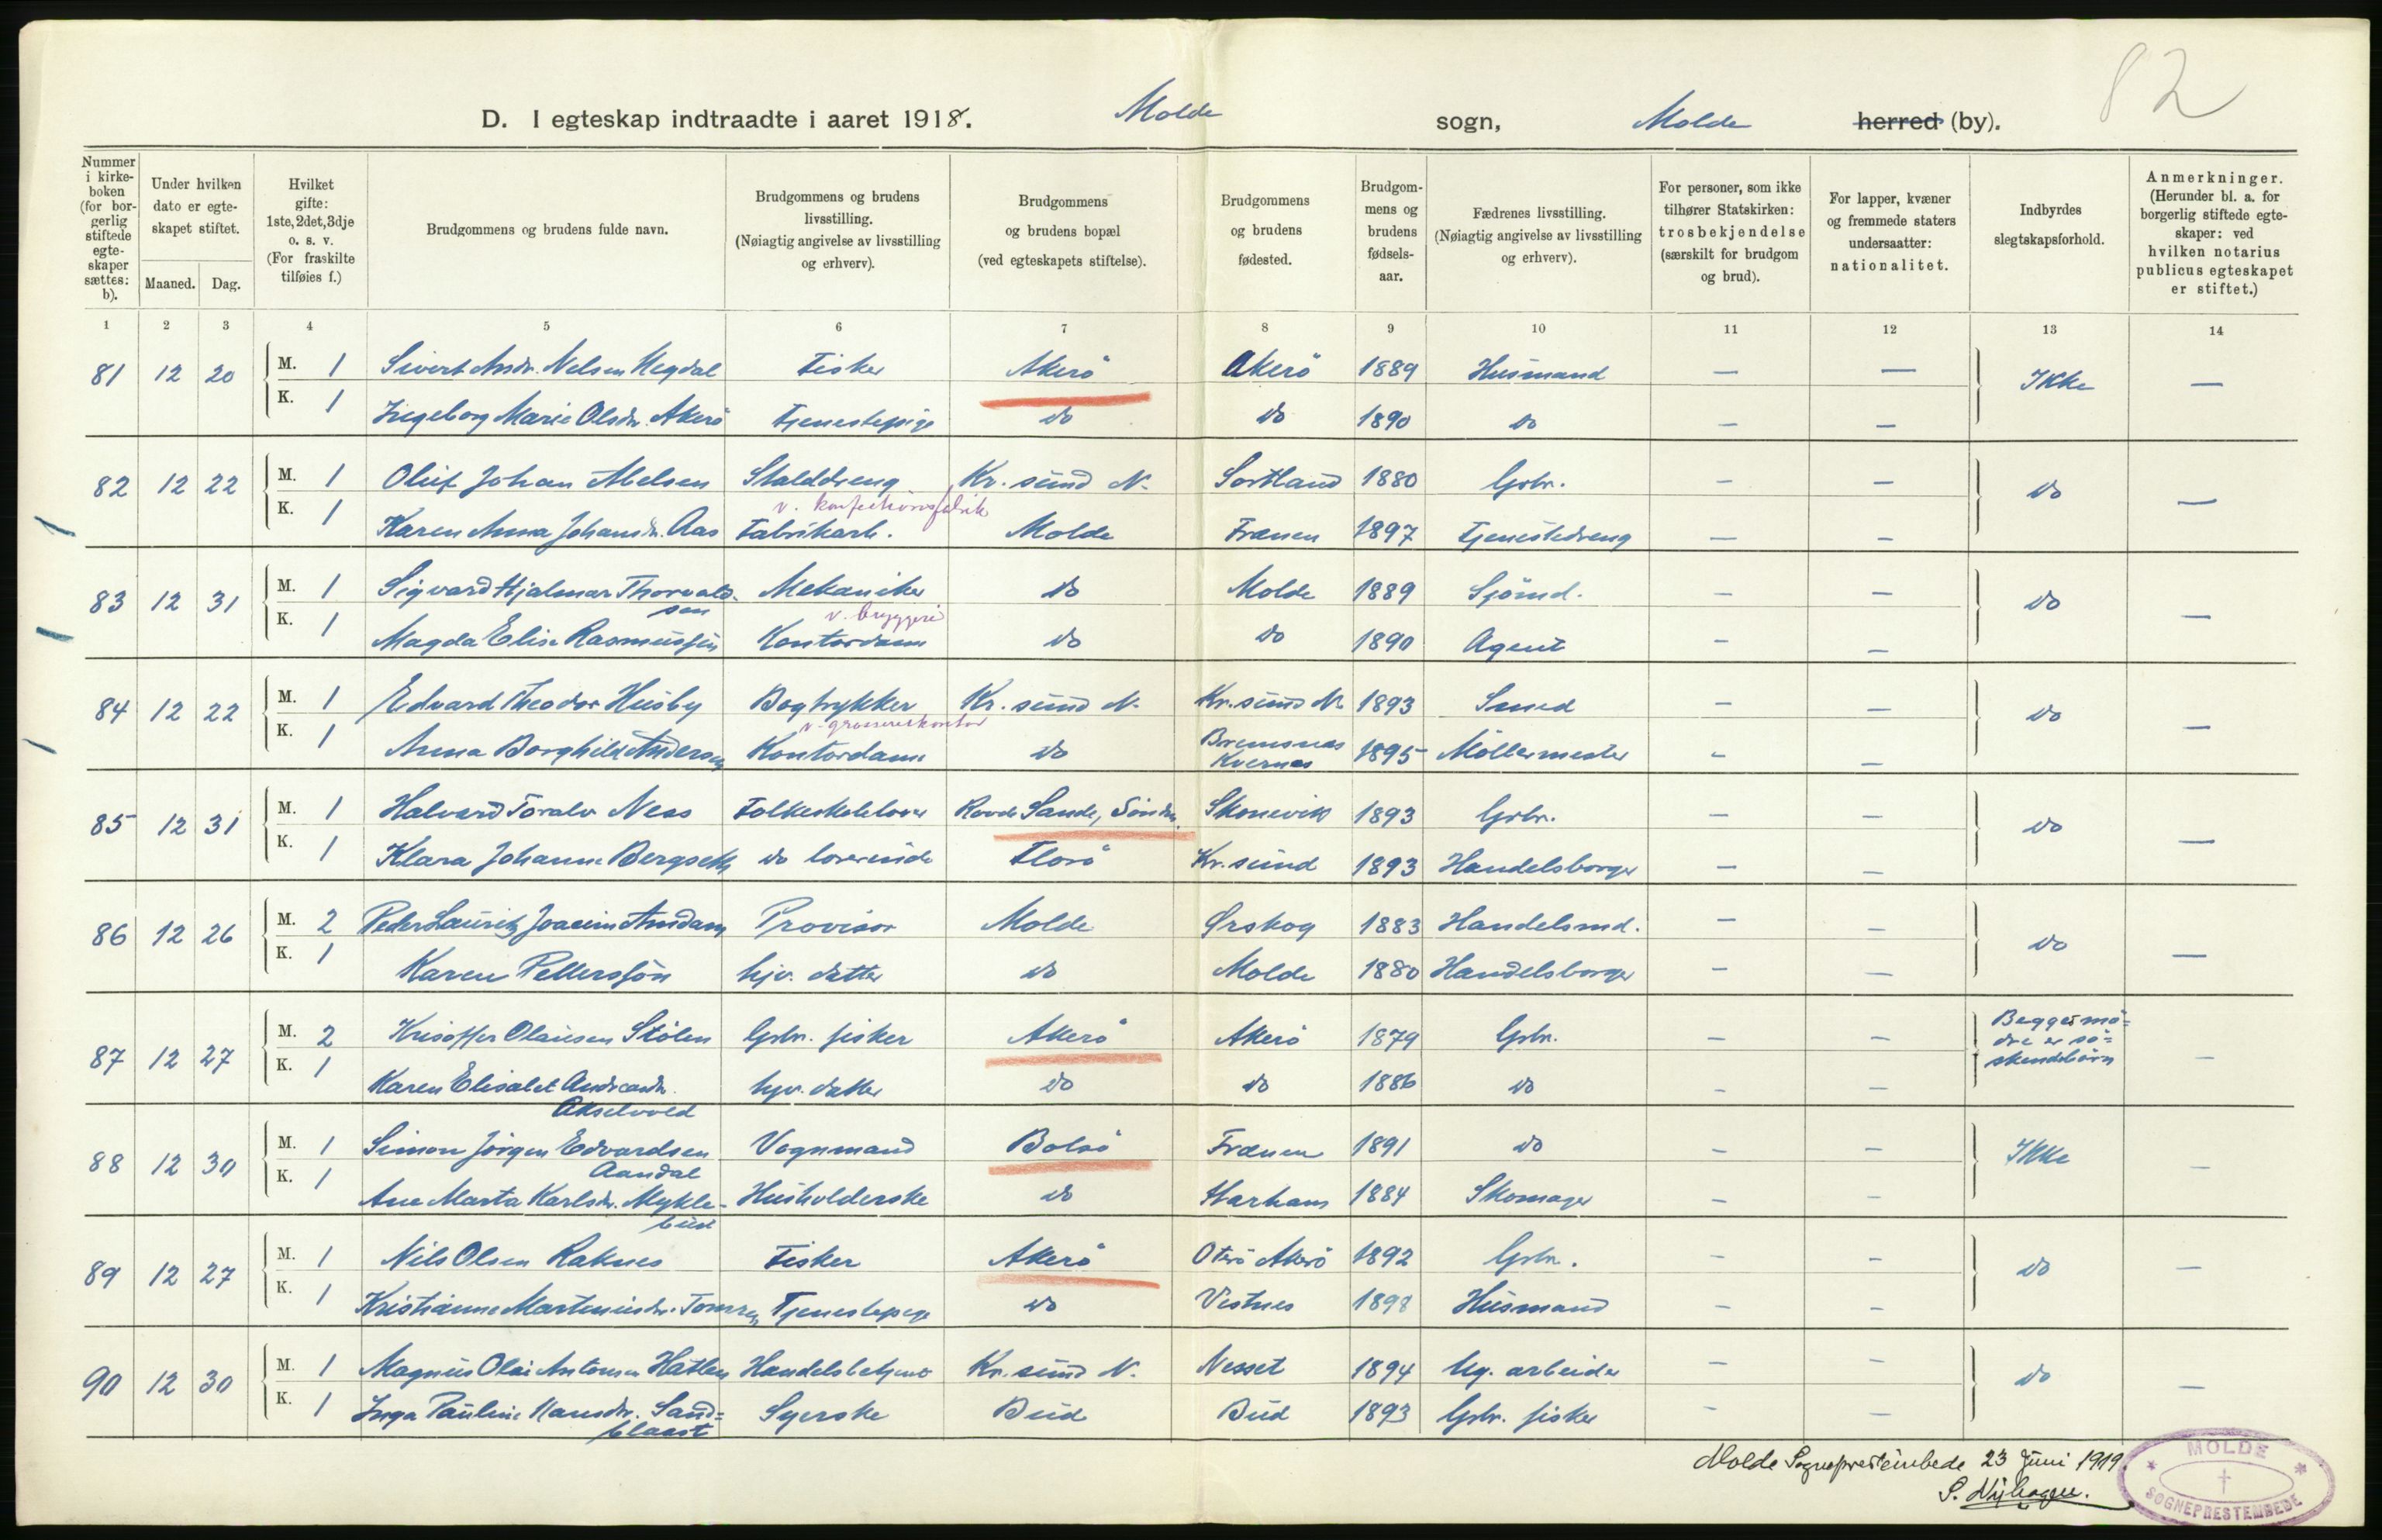 82
D. I egteskap indtraadte i aaret 1918. Molde sogn, Molde herred (by).
Nummer i kirke-boken (for bor-gerlig stiftede egte-skaper sættes: b).
Under hvilken dato er egte-skapet stiftet.
Maaned. Dag.
Hvilket gifte: 1ste, 2det, 3dje o. s. v. (For fraskilte tilføies f.)
Brudgommens og brudens fulde navn.
Brudgommens og brudens livsstilling. (Nøiagtig angivelse av livsstilling og erhverv).
Brudgommens og brudens bopæl (ved egteskapets stiftelse).
Brudgommens og brudens fødested.
Brudgom-mens og brudens fødsels-aar.
Fædrenes livsstilling. (Nøiagtig angivelse av livsstilling og erhverv).
For personer, som ikke tilhører Statskirken: trosbekjendelse (særskilt for brudgom og brud).
For lapper, kvæner og fremmede staters undersaatter: nationalitet.
Indbyrdes slegtskapsforhold.
Anmerkninger. (Herunder bl. a. for borgerlig stiftede egte-skaper: ved hvilken notarius publicus egteskapet er stiftet.)
1 2 3 4 5 6 7 8 9 10 11 12 13 14
81 12 20 M. 1 Sivert Andr. Nelsen Hegdal Fisker Akerö Akerö 1889 Husmand — — Ikke —
K. 1 Ingeborg Marie Olsdr. Akerö Tjenestepige do do 1890 do — —
82 12 22 M. 1 Oluf Johan Melsen Stalddreng Kr. sund N. Sortland 1880 Gbr. — — do —
v. konfektionsfabrik
K. 1 Karen Anna Johansdr. Aas Fabrikarb. Molde Frænen 1897 Tjenestedreng — —
83 12 31 M. 1 Sigvard Hjalmar Thorvald-sen Mekaniker do Molde 1889 Sjömd. — — do —
v. bryggeri
K. 1 Magda Elise Rasmussen Kontordame do do 1890 Agent — —
84 12 22 M. 1 Edvard Theodor Husby Bogtrykker Kr. sund N. Kr. sund N. 1893 Smed — — do —
v. grossererkontor
K. 1 Anna Borghild Andersen Kontordame do Bremsnes Kvernes 1895 Möllermester — —
85 12 31 M. 1 Halvard Toralv Nes Folkeskolelærer Rovde Sande, Söndm. Skonevik 1893 Gbr. — — do —
K. 1 Klara Johanne Bergseth do lærerinde Florö Kr. sund 1893 Handelsborger — —
86 12 26 M. 2 Peder Lauritz Joacim Amdam Provisor Molde Ørskog 1883 Handelsmd. — — do —
K. 1 Karen Pettersson hjv. datter do Molde 1880 Handelsborger — —
87 12 27 M. 2 Kristoffer Olausen Stölen Gbr. fisker Akerö Akerö 1879 Gbr. — — Begges mö=dre er sö=skendebörn —
K. 1 Karen Elisabet Andreasdr. Akselvold hjv. datter do do 1886 do — —
88 12 30 M. 1 Simon Jörgen Edvardsen Aandal Vognmand Bolsö Frænen 1891 do — — Ikke —
K. 1 Ane Marta Karlsdr. Mykle-bust Husholderske do Harhams 1884 Skomager — —
89 12 27 M. 1 Nils Olsen Raknes Fisker Akerö Oterö Akerö 1892 Gbr. — — do —
K. 1 Kristianne Martinusdr. Tomren Tjenestepige do Vestnes 1898 Husmand — —
90 12 30 M. 1 Magnus Olai Antonsen Hatlen Handelsbetjent Kr. sund N. Nesset 1894 Ug. arbeider — — do —
K. 1 Inga Pauline Hansdr. Sand=blaast Syerske Bud Bud 1893 Gbr. fisker — —
Molde Sogneprestembede 23 Juni 1919.
MOLDE SOGNEPRESTEMBEDE